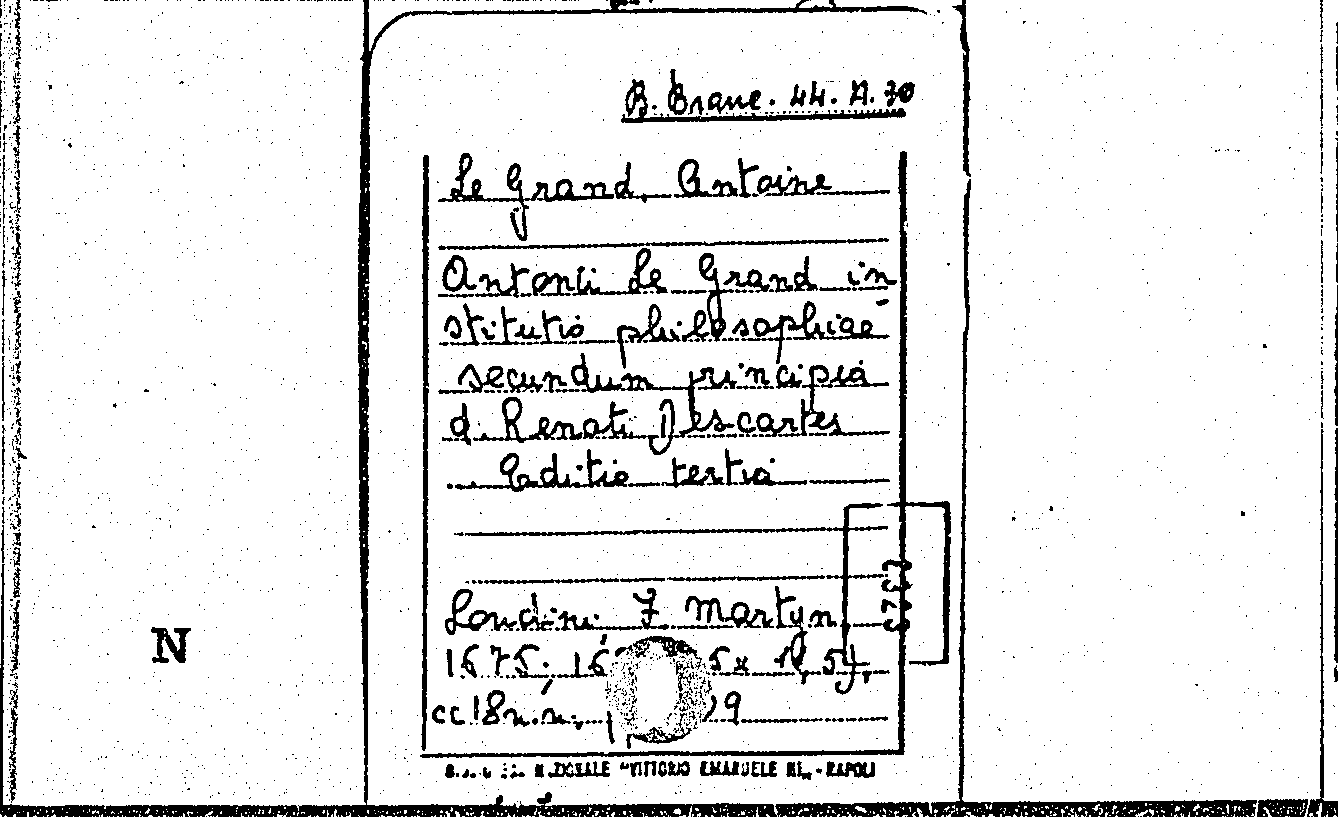 B. Branc. 44. A. 70
Le Grand, Antoine
Antonii Le Grand in
stitutio philosophiae
secundum principia
d. Renati Descartes
... Editio tertia
Londini, J. Martyn,
1675; 5 x
cc. 18 n.n.,
N
NAZIONALE "VITTORIO EMANUELE III" - NAPOLI